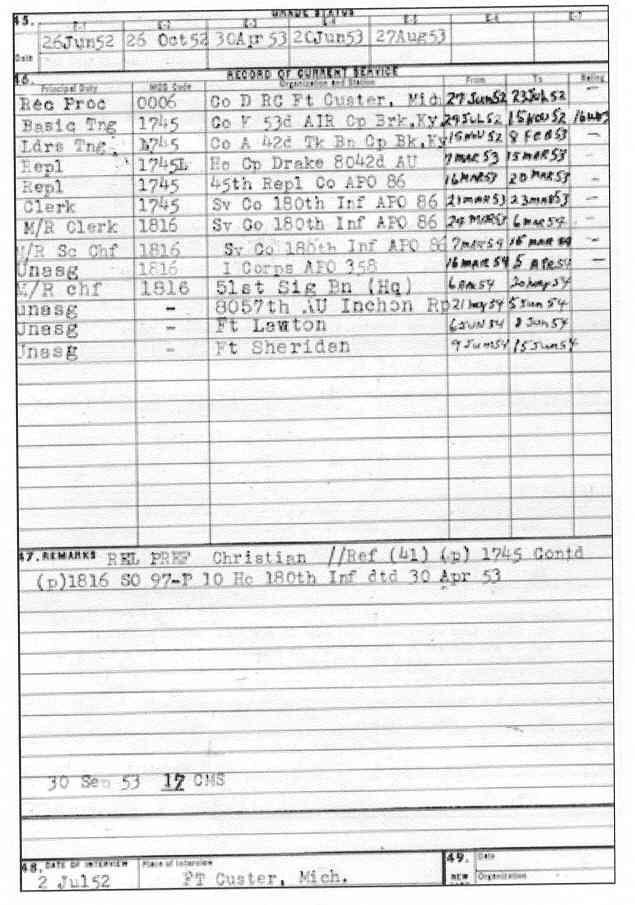 45. GRADE STATUS
E-1 E-2 E-3 E-4 E-5 E-6 E-7
Date 26Jun52 26 Oct52 30Apr 53 20Jun53 27Aug53
46. RECORD OF CURRENT SERVICE
Principal Duty MOS Code Organization and Station From To Rating
Rec Proc 0006 Co D RC Ft Custer, Mich 27 Jun52 23JUL52 -
Basic Tng 1745 Co F 53d AIR Cp Brk,Ky 29JUL52 15NOV52
Ldrs Tng 1745 Co A 42d Tk Bn Cp Bk,Ky 15NOV52 8 FEB53 -
Repl 1745 Hc Cp Drake 8042d AU 7MAR53 15MAR53 -
Repl 1745 45th Repl Co APO 86 16MAR53 20MAR53 -
Clerk 1745 Sv Co 180th Inf APO 86 21MAR53 23MAR53 -
M/R Clerk 1816 Sv Co 180th Inf APO 86 24 6MAR54 -
M/R Sc Chf 1816 Sv Co 180th Inf APO 86 7MAR54 15 MAR 54 -
Unasg 1816 I Corps APO 358 16MAR54 5 APR54 -
M/R chf 1816 51st Sig Bn (Hq) 6APR54 20May54
unasg - 8057th AU Inchon Rp 21May54 5Jun54
Unasg - Ft Lawton 6JUN54 8Jun54
Unasg - Ft Sheridan 9Jun54 15Jun54
47. REMARKS REL PREF Christian //Ref (41) (p) 1745 Contd
(p)1816 SO 97-P 10 Hc 180th Inf dtd 30 Apr 53
30 Sep 53 17 CMS
48. DATE OF INTERVIEW Place of Interview 49. Date
2 Jul52 FT Custer, Mich. NEW Organization